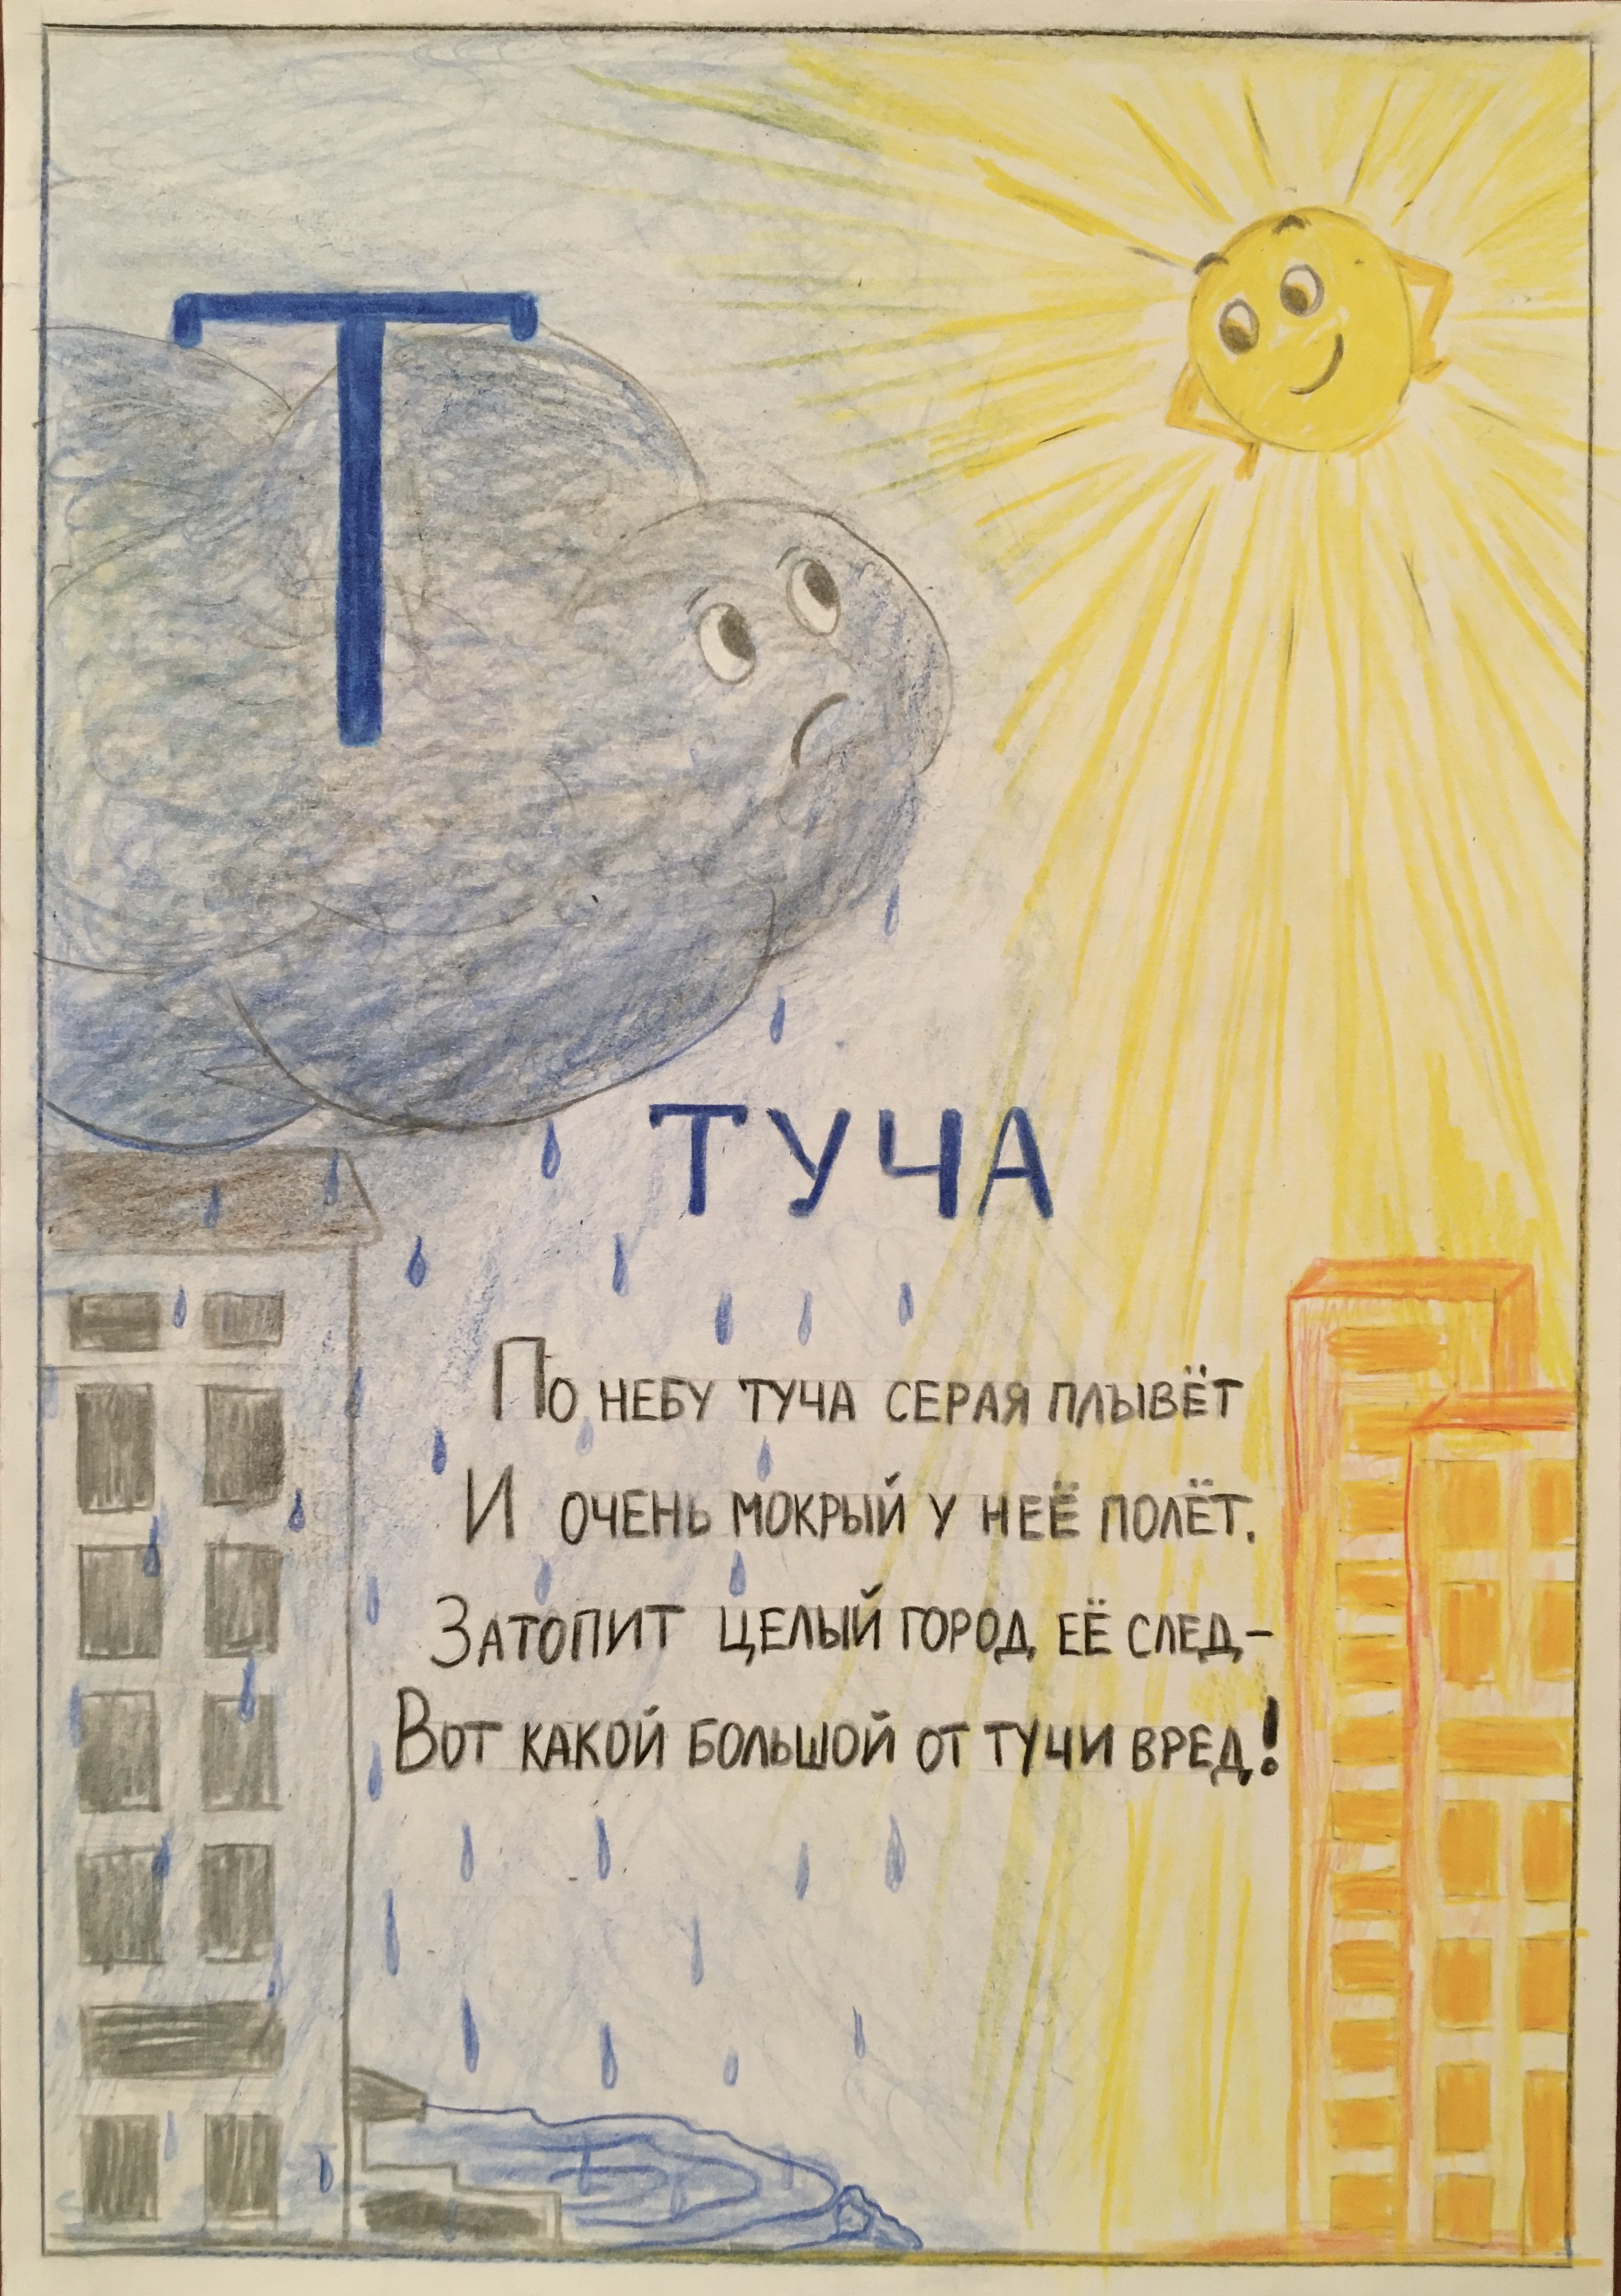 Т
ТУЧА
По небу туча серая плывёт
И очень мокрый у неё полёт.
Затопит целый город её след-
Вот какой большой от тучи вред!